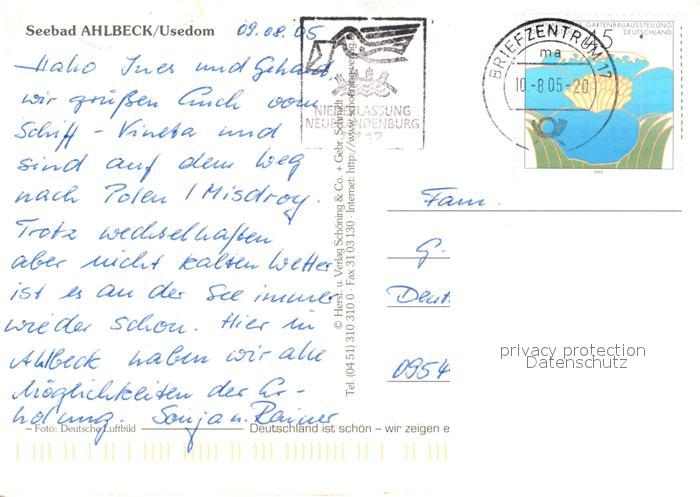 Seebad AHLBECK/Usedom 09.08.05
Hallo Ines und Gehard
wir grüßen Euch vom
Schiff - Vineta und
sind auf dem Weg
nach Polen / Misdroy.
Trotz wechselhaften
aber nicht kalten Wetter
ist es an der See immer
wieder schön. Hier in
Ahlbeck haben wir alle
Möglichkeiten der Er-
holung. Sonja u. Rainer
– Foto: Deutsche Luftbild
Deutschland ist schön – wir zeigen e
© Herst. u. Verlag Schöning & Co. + Gebr. Schmidt
Tel. (04 51) 310 310 0 · Fax 31 03 130 · Internet: http://www.schoening-verlag.de
NIEDERLASSUNG
NEUBRANDENBURG
17
BRIEFZENTRUM 17
ma
10.-8.05-20
GARTENBAUAUSSTELLUNG
45 DEUTSCHLAND
Fam.
G.
Deut
0954
privacy protection
Datenschutz